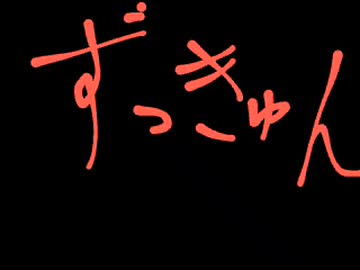 ずっきゅん